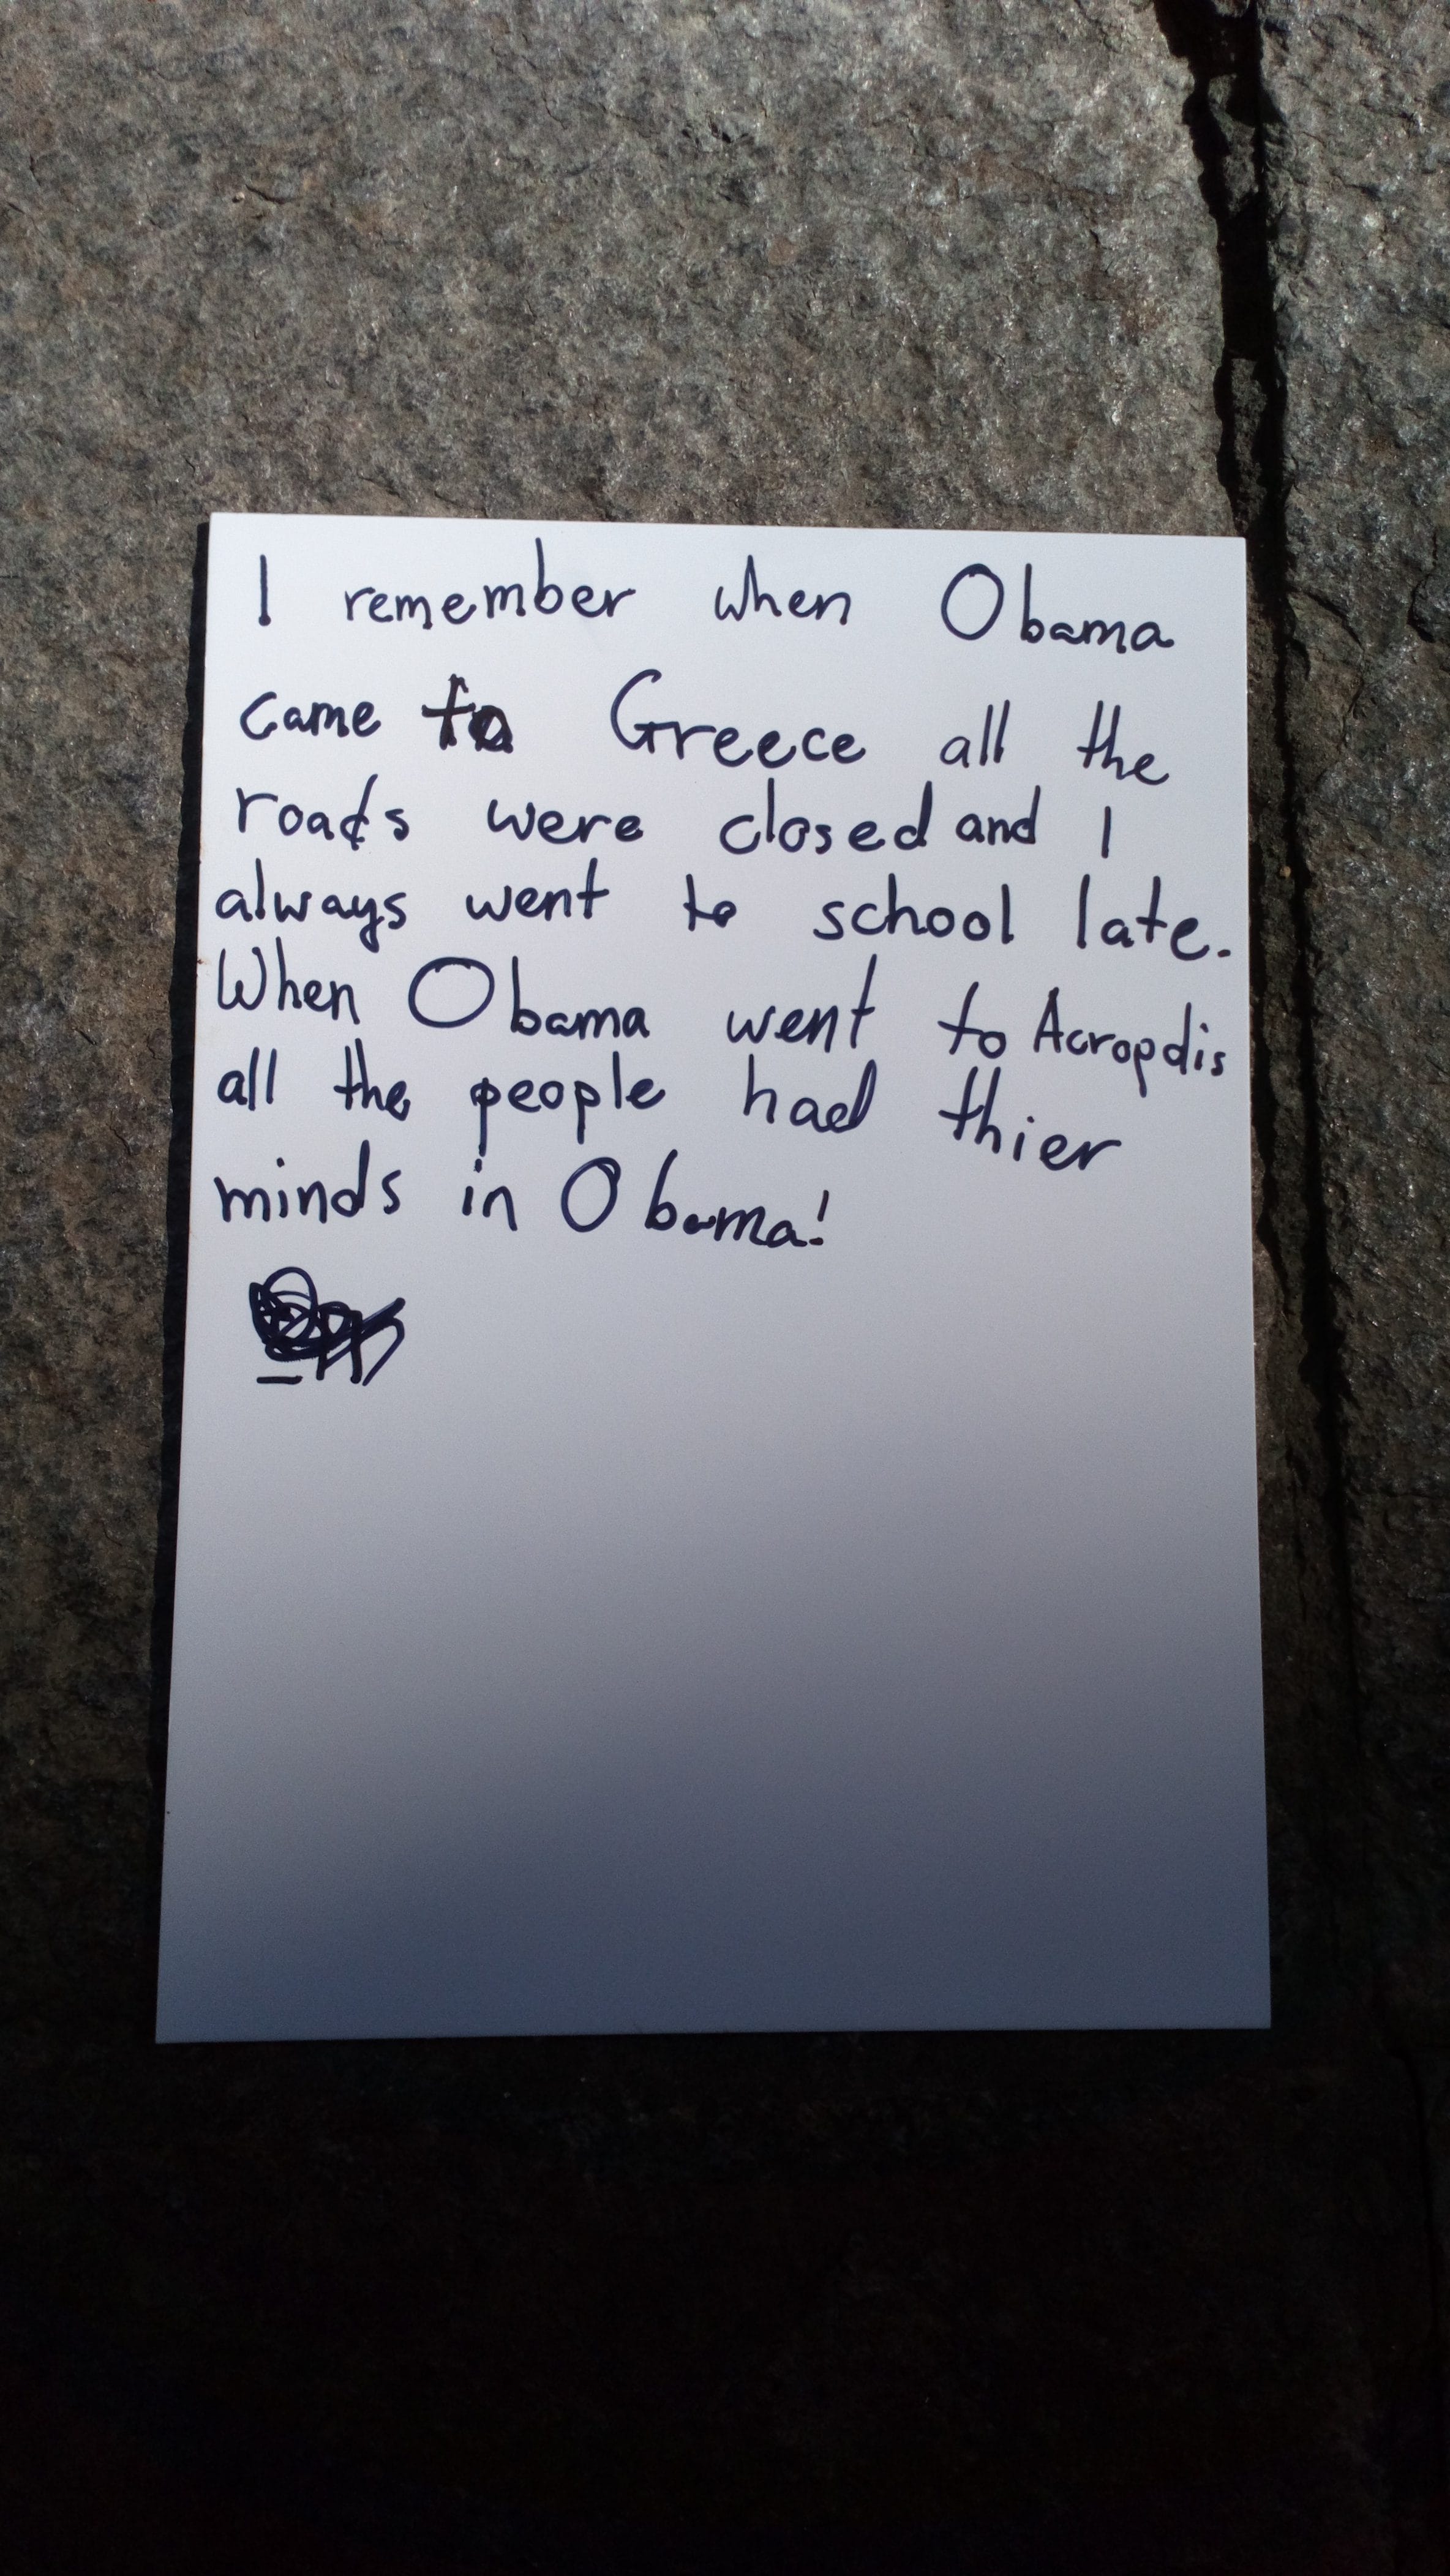 I remember when Obama
came to Greece all the
roads were closed and I
always went to school late.
When Obama went to Acropolis
all the people had thier
minds in Obama!